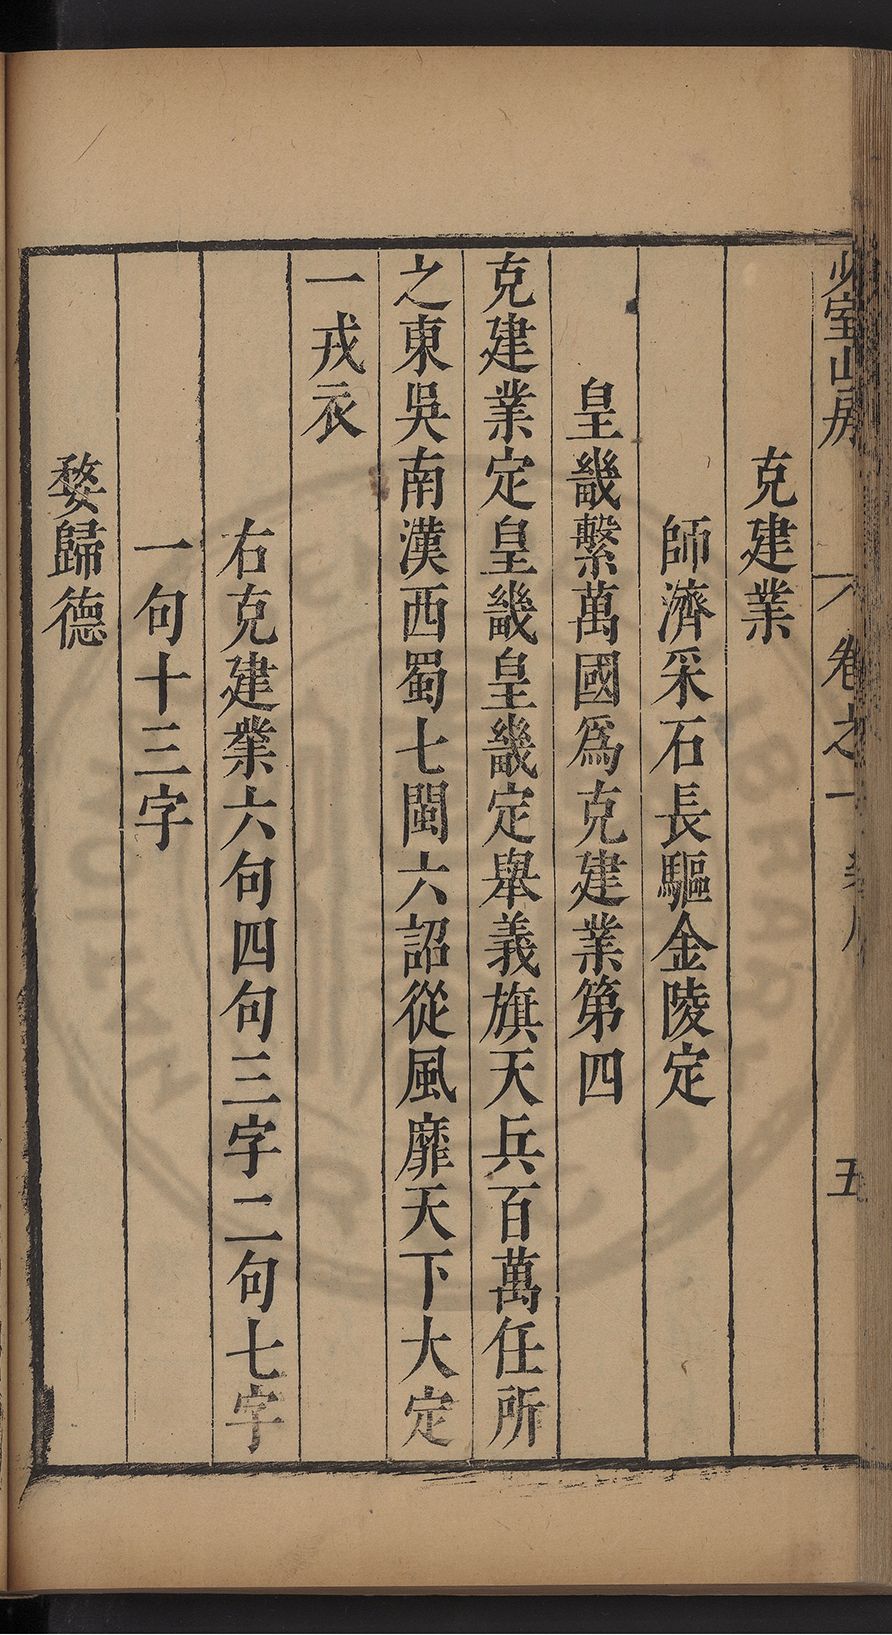 少室山房 卷之一 五
克建業
師濟采石長驅金陵定
皇畿繫萬國爲克建業第四
克建業定皇畿皇畿定舉義旗天兵百萬任所
之東吳南漢西蜀七閩六詔從風靡天下大定
一戎衣
右克建業六句四句三字二句七字
一句十三字
婺歸德